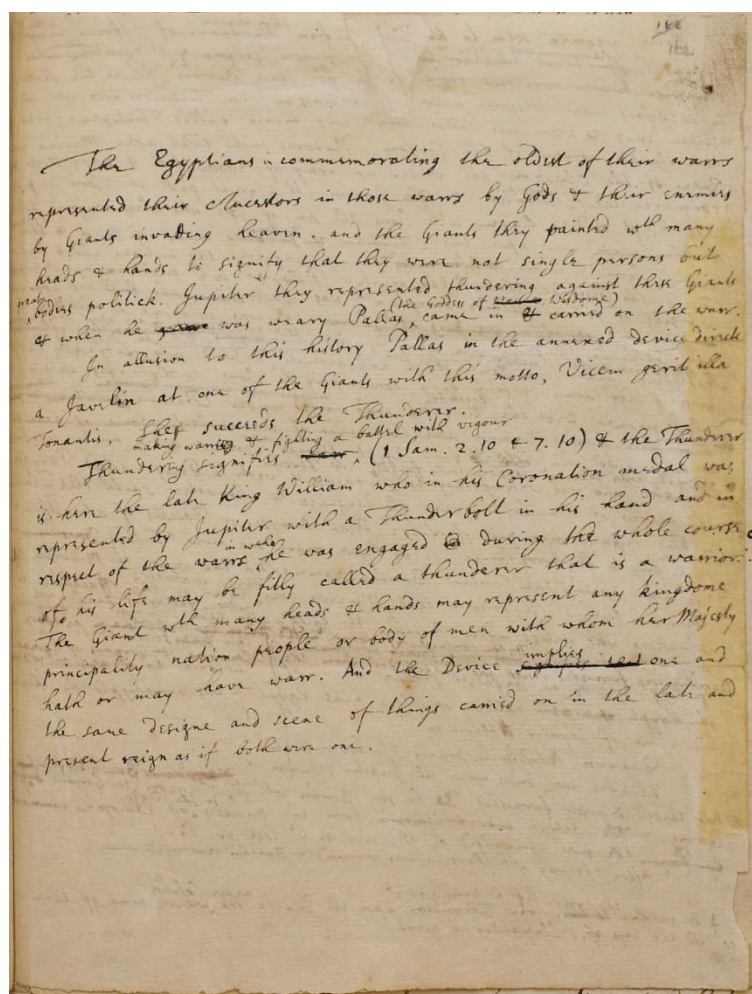 The Egyptians in commemorating the oldest of their warrs
represented their Ancestors in those warrs by Gods & their enemies
by Giants invading heaven. and the Giants they painted wth many
heads & hands to signify that they were not single persons but
great bodies politick. Jupiter they represented thundering against these Giants
(the Goddess of wisdome)
& when he was weary Pallas came in & carried on the warr.
In allusion to this history Pallas in the annexed device directs
a Javelin at one of the Giants with this motto, Vicem gerit illa
Tonantis, She succeeds the Thunderer.
making warr & fighting a battel with vigour
Thundering signifies (1 Sam. 2.10 & 7.10) & the Thunderer
is here the late King William who in his Coronation medal was
represented by Jupiter with a Thunderbolt in his hand and in
in wch
respect of the warrs he was engaged during the whole course
of his life may be fitly called a thunderer that is a warrior.
The Giant wth many heads & hands may represent any kingdome
principality nation people or body of men with whom her Majesty
hath or may have warr. And the Device
implies
one and
the same designe and scene of things carried on in the late and
present reign as if both were one.